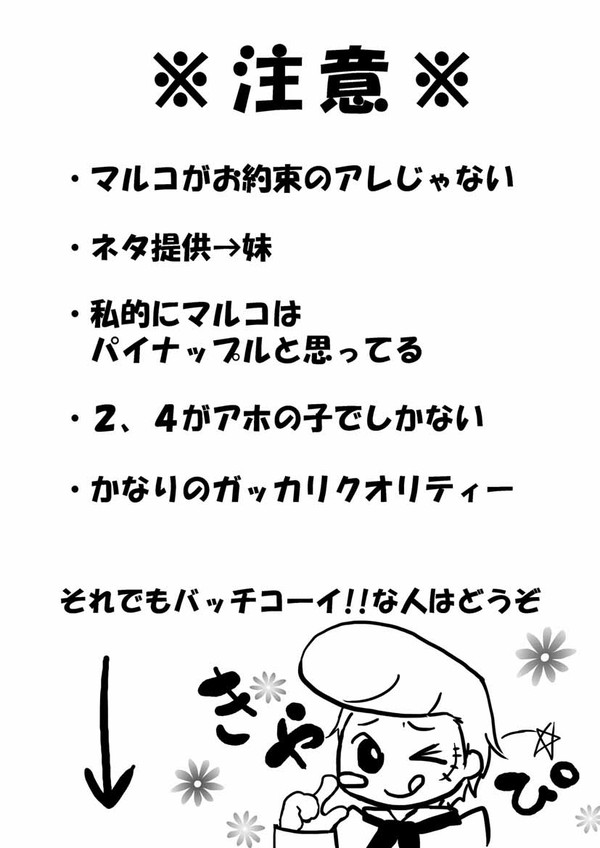 ※注意※
・マルコがお約束のアレじゃない
・ネタ提供→妹
・私的にマルコは
パイナップルと思ってる
・２、４がアホの子でしかない
・かなりのガッカリクオリティー
それでもバッチコーイ!!な人はどうぞ
きゃ
ぴ